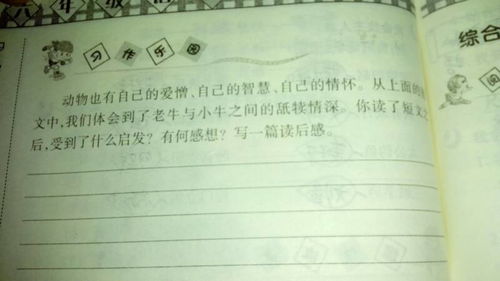 年级
习作乐园
综合
动物也有自己的爱憎、自己的智慧、自己的情怀。从上面的
文中,我们体会到了老牛与小牛之间的舐犊情深。你读了短文之
后,受到了什么启发?有何感想?写一篇读后感。